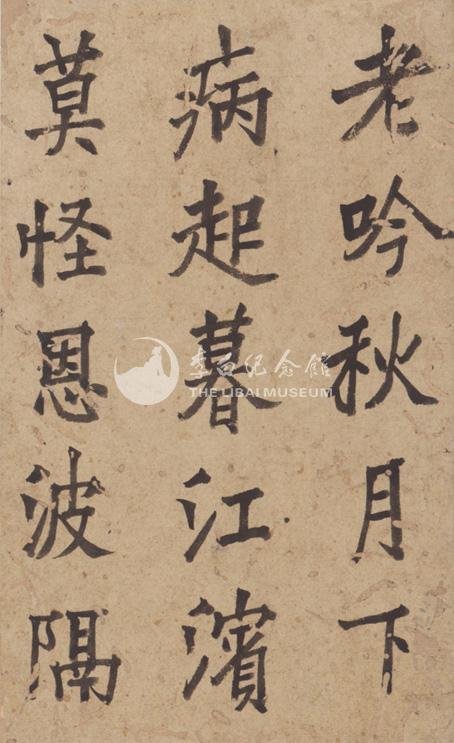 老吟秋月下
病起暮江濱
莫怪恩波隔
李白纪念馆
THE LIBAI MUSEUM